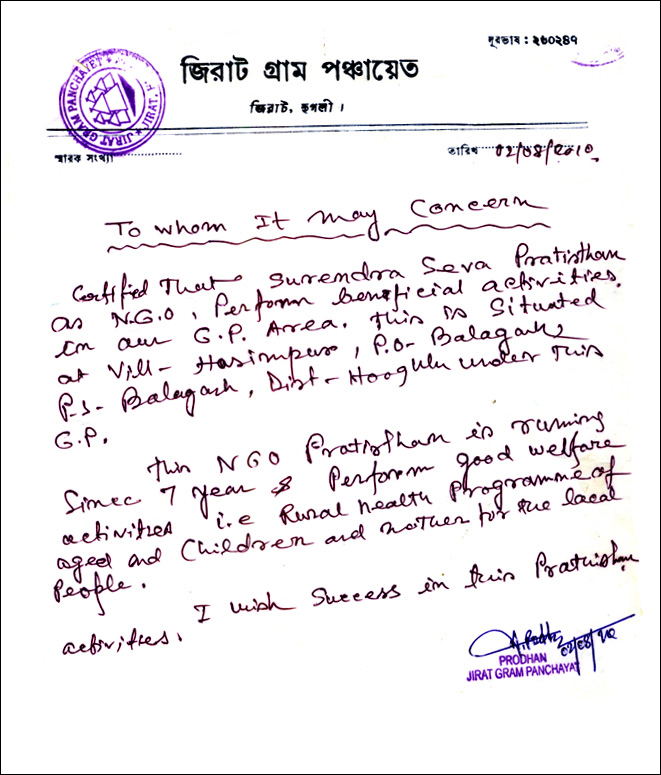 দূরভাষ : ২৬০২৪৭
জিরাট গ্রাম পঞ্চায়েত
জিরাট, হুগলী ।
JIRAT GRAM PANCHAYET
JIRAT
স্মারক সংখ্যা
তারিখ 02/04/2010
To Whom It May Concern
Certified That Surendra Seva Pratistham
as N.G.O, Perform beneficial activities
in our G.P. Area. This is Situated
at Vill- Hasimpur, P.O- Balagarh,
P.S- Balagarh, Dist- Hooghly under This
G.P.
This NGO Pratistham is running
Since 7 year & Perform good welfare
activities i.e Rural health Programme of
aged and Children and mother for the local
People.
I wish Success in this Pratistham
activities.
PRODHAN
JIRAT GRAM PANCHAYAT